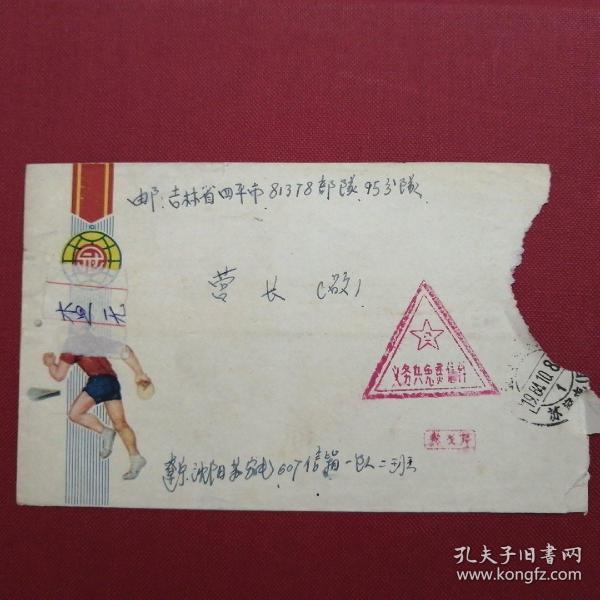 邮:吉林省四平市81378部隊95分隊
营长(收)
壹元
义务兵免费信件
1984.10.8
1
辽宁沈阳苏家屯607信箱一队二班
孔夫子旧书网
www.kongfz.com